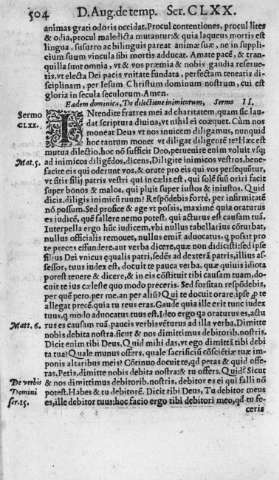 504 D. Aug. de temp. Ser. CLXX.
animas graci odoris occidat. Procul contentiones, procul lites
& odia, procul maledicta mutantur: & quia laqueus mortis est
lingua, susurro ac bilinguis pareat animæ suæ, ne in supplicium suum vincula sibi mortis adducat. Amate pacẽ, & tranquilla sunt omnia, vt & vos præmia & nobis gaudia reseruetis. vt electa Dei pacis vnitate fundata, perfectam teneatis disciplinam, per Iesum Christum dominum nostrum, cui est
gloria in secula seculorum. Amen.
Eadem dominica, De dilectione inimicorum, Sermo II.
Sermo
CLXX.
INtendite fratres mei ad charitatem. quam sic laudat scriptura diuina, vt nihil ei coæquet. Cum nos
moneat Deus vt nos inuicem diligamus, nunquid
hoc tantum monet vt diligas diligentẽ te? Hæc est
mutua dilectio, hoc nõ sufficit Deo, peruenire enim voluit vsq;
Mat. 5. ad inimicos diligẽdos, dicens, Diligite inimicos vestros, benefacite eis qui oderunt vos, & orate pro eis qui vos persequuntur,
vt sitis filij patris vestri qui in cælis est, qui solẽ suũ oriri facit
super bonos & malos, qui pluit super iustos & iniustos. Quid
dicis, diligis inimicũ tuum? Respõdebis fortè, per infirmitatẽ
nõ possum. Sed profice & age vt possis, maximè quia oraturus
es iudicẽ, quẽ fallere nemo potest, qui acturus est causam tuã.
Interpella ergo hũc iudicem, vbi nullus tabellarius cõturbat,
nullus officialis remouet, nullus emit aduocatus, q possit pro
te preces effundere, aut verba dicere, quæ non didicisti: sed ipse
filius Dei vnicus equalis patri, sedẽs ad dexterã patris, illius assessor, tuus iudex est, docuit te pauca verba, quæ quiuis idiota
potest tenere & dicere, & in eis cõstituit tibi causam tuam, docuit te ius cæleste quo modo preceris. Sed forsitan respõdebis,
per quẽ peto, per me, an per aliũ? Qui te docuit orare, ipse p te
allegat precẽ, quia tu reus eras. Gaude quia ille erit tunc iudex
tuus, q modo aduocatus tuus est. Ideo ergo qa oraturus es, actu
Matt. 6. rus es causam tuã, paucis verbis vẽturus es ad verba, Dimitte
nobis debita nostra, sicut & nos dimittimus debitoribus nostris.
Dicit enim tibi Deus, Quid mihi das, vt ego dimittã tibi debita tua? Quale munus offers, quale sacrificiũ cõscientiæ tuæ imponis altaribus meis? Cõtinuo docuit te, qd petas & quid offeras. Petis, dimitte nobis debita nostra: & tu offers. Quid? Sicut
De verbis & nos dimittimus debitorib. nostris. debitor es ei qui falli nõ
Domini potest. Habes & tu debitorẽ. Dicit tibi Deus, Tu debitor meus
ser. 15. es, ille debitor tuus: hoc facio ergo tibi debitori meo, qd tu feceris